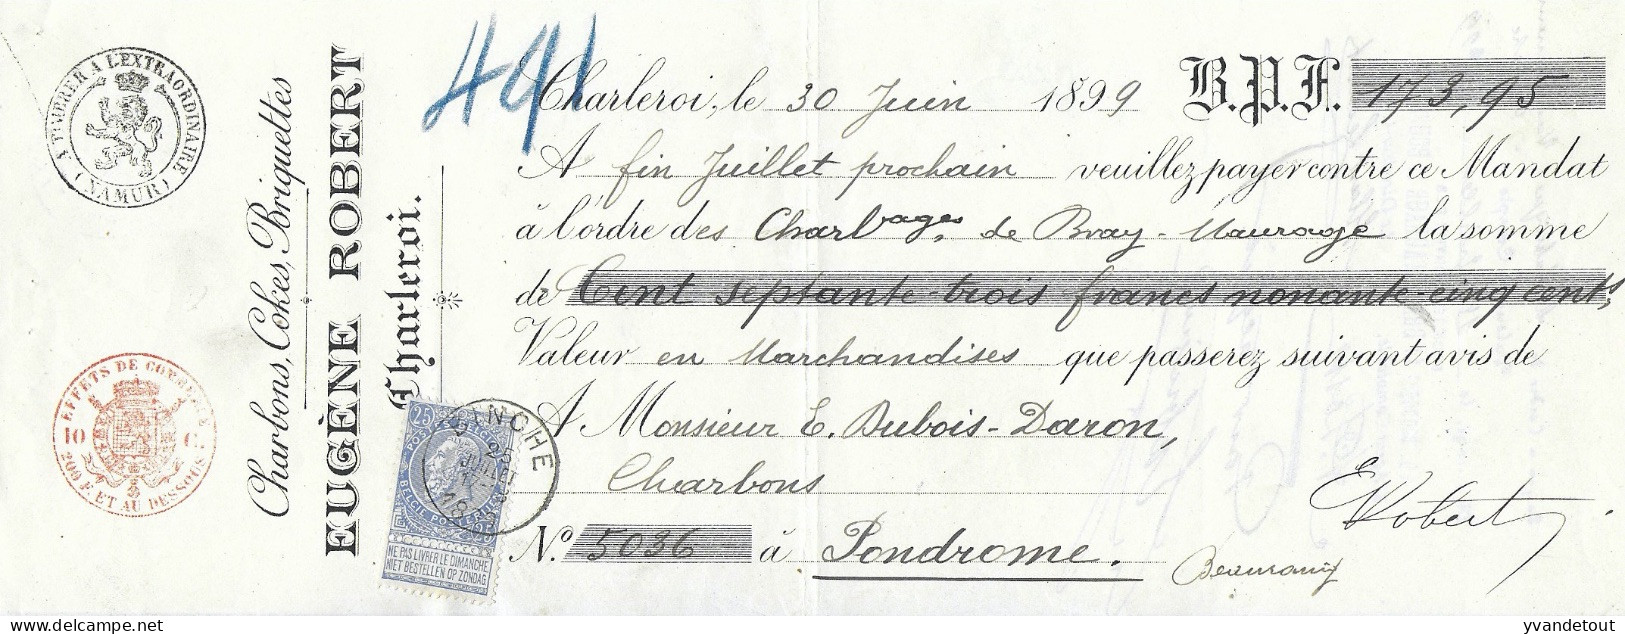 A TIMBRER A L'EXTRAORDINAIRE
(NAMUR)
EFFETS DE COMMERCE
10 C.
200 F. ET AU DESSOUS
Charbons, Cokes, Briquettes
EUGÈNE ROBERT
Charleroi.
491
Charleroi, le 30 Juin 1899 B.P.F. 173,95
A fin Juillet prochain veuillez payer contre ce Mandat
à l'ordre des Charbages de Bray-Maurage la somme
de Cent septante-trois francs nonante-cinq cents
Valeur en Marchandises que passerez suivant avis de
A Monsieur E. Dubois-Daron,
Charbons
No. 5036 à Pondrome.
ERobert
25
BINCHE
25
JUILLET
NE PAS LIVRER LE DIMANCHE
NIET BESTELLEN OP ZONDAG
yvandetout